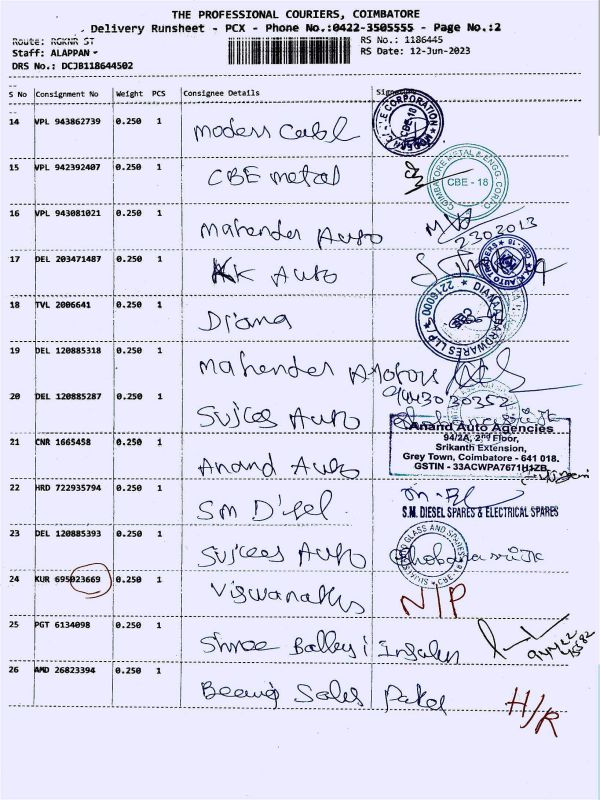 THE PROFESSIONAL COURIERS, COIMBATORE
Delivery Runsheet - PCX - Phone No.:0422-3505555 - Page No.:2
Route: RGKNR ST
RS No.: 1186445
Staff: ALAPPAN -
RS Date: 12-Jun-2023
DRS No.: DCJB118644502
S No Consignment No Weight PCS Consignee Details
14 VPL 943862739 0.250 1 Modern Cabl
CBE-10
15 VPL 942392407 0.250 1 CBE metal
COIMBATORE METAL & ENGG. CORPO
CBE - 18
16 VPL 943081021 0.250 1 Mahender Auto
2303013
17 DEL 203471487 0.250 1 KK Auto
18 TVL 2006641 0.250 1 Diana
DIANA HARDWARES LLP
2216000
19 DEL 120885318 0.250 1 Mahender Motors
9443030352
20 DEL 120885287 0.250 1 Auto
Anand Auto Agencies
94/2A, 2nd Floor,
Srikanth Extension,
Grey Town, Coimbatore - 641 018.
GSTIN - 33ACWPA7671H1ZB
21 CNR 1665458 0.250 1 Anand Auto
22 HRD 722935794 0.250 1 SM D'sel
S.M. DIESEL SPARES & ELECTRICAL SPARES
23 DEL 120885393 0.250 1 Auto
GLASS AND SPARES
24 KUR 695023669 0.250 1 Viswanaths N/P
25 PGT 6134098 0.250 1 Shree Balleyi
26 AMD 26823394 0.250 1 Sales
H/R